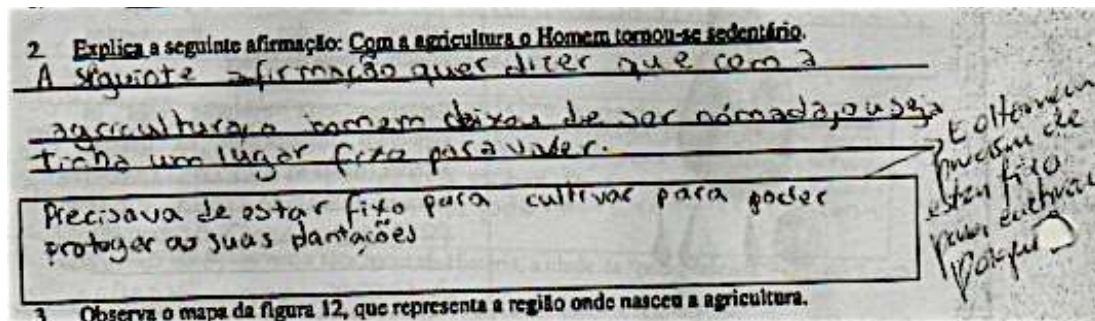 2 Explica a seguinte afirmação: Com a agricultura o Homem tornou-se sedentário.
A seguinte afirmação quer dizer que com a
agricultura, o homem deixou de ser nómada, ou seja
tinha um lugar fixo para viver.
Precisava de estar fixo para cultivar para poder
proteger as suas plantações
E o Homem
precisa de
estar fixo
para cultivar
porque
3 Observa o mapa da figura 12, que representa a região onde nasceu a agricultura.